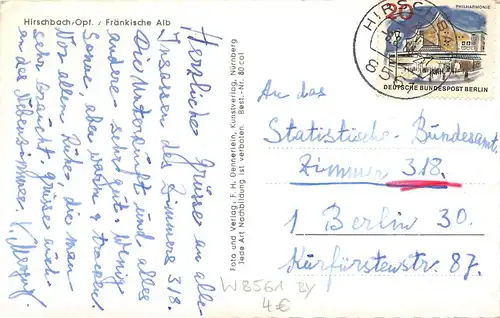 Hirschbach/Opf. / Fränkische Alb
Herzliche Grüsse an alle
Insassen des Zimmers 318.
Die Unterkunft und alles
andere sehr gut. Wenig
Sonne aber warm u. trocken.
Vor allem Ruhe, die man
sehr braucht. Grüsse auch
an das Nebenzimmer.
Foto und Verlag: F. H. Dennerlein, Kunstverlag, Nürnberg
Jede Art Nachbildung ist verboten. Best.-Nr. 80 col
20
PHILHARMONIE
DEUTSCHE BUNDESPOST BERLIN
An das
Statistische-Bundesamt
Zimmer 318.
1 Berlin 30.
Kürfürstenstr. 87.
W8561 BY
4 €